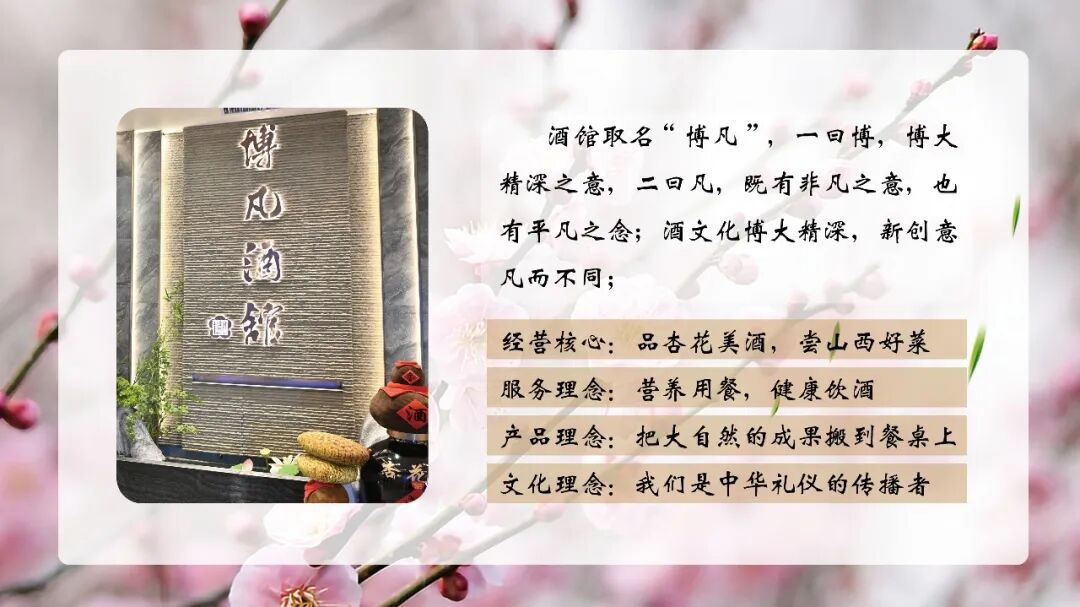 博凡酒館
酒
杏花
酒馆取名“博凡”，一曰博，博大
精深之意，二曰凡，既有非凡之意，也
有平凡之念；酒文化博大精深，新创意
凡而不同；
经营核心：品杏花美酒，尝山西好菜
服务理念：营养用餐，健康饮酒
产品理念：把大自然的成果搬到餐桌上
文化理念：我们是中华礼仪的传播者